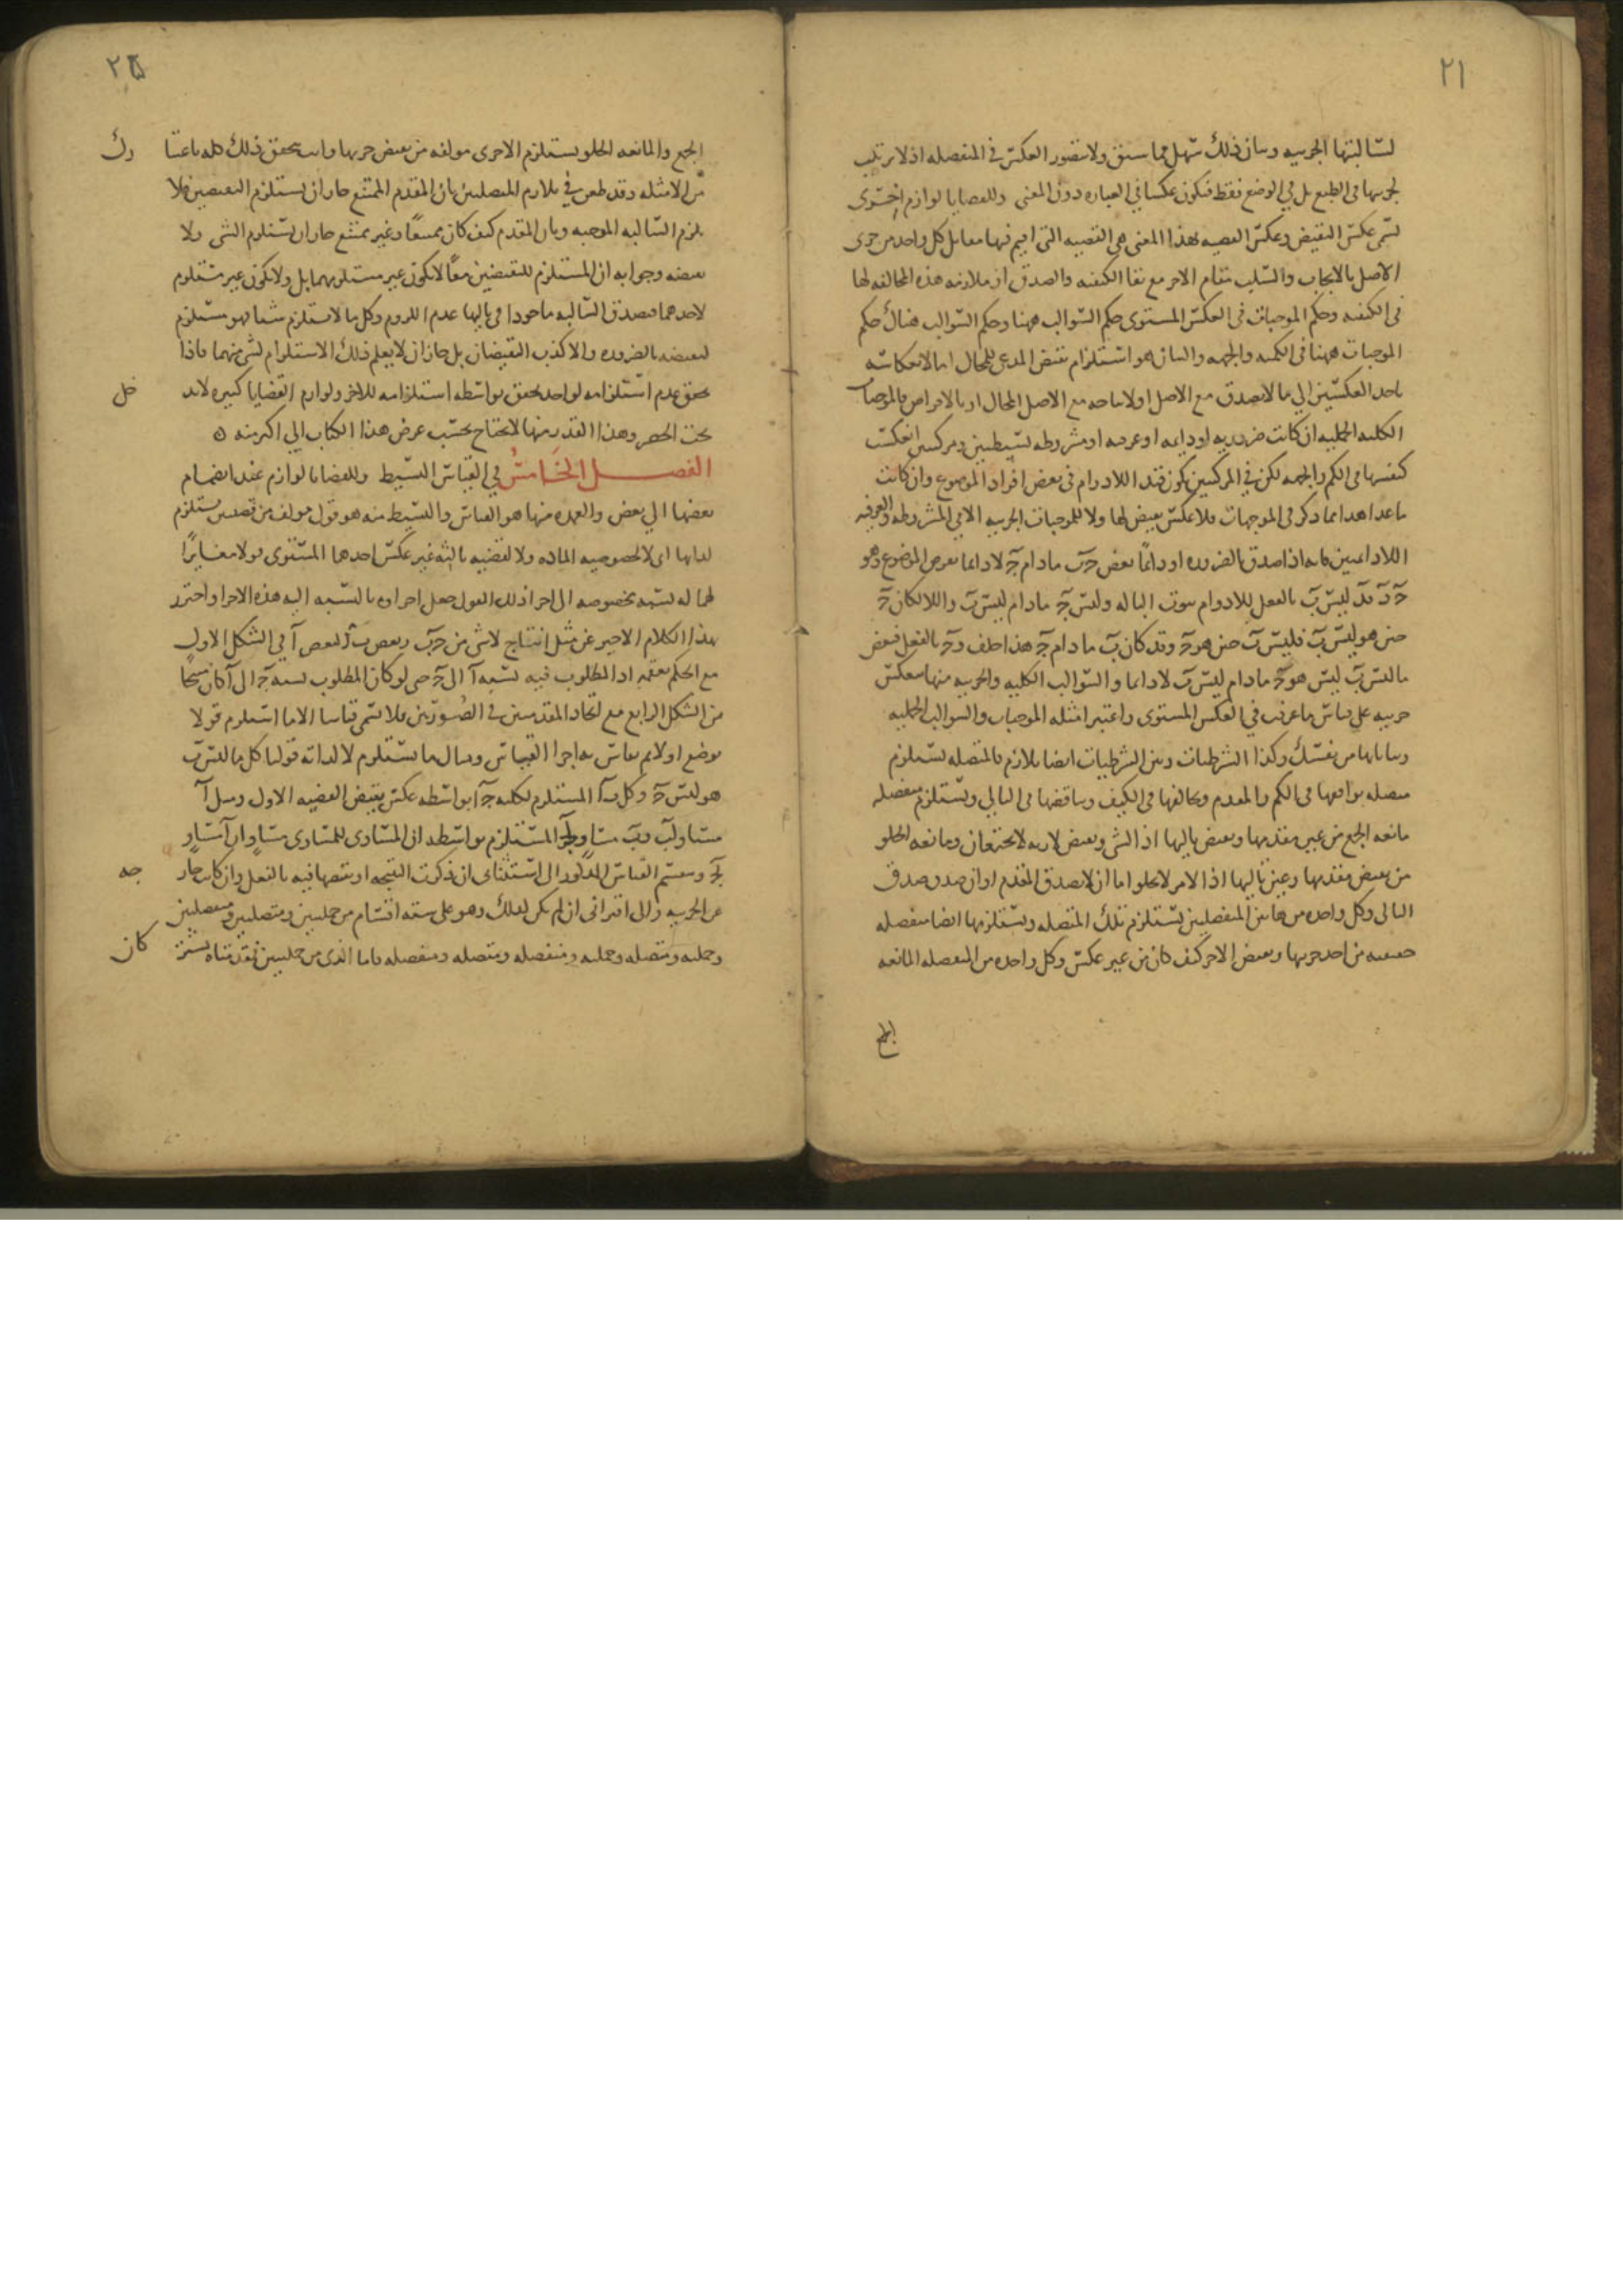 ٢١
لسالبتها الجزييه وبيان ذلك سهل مما سبق ولا يتصور العكس في المنفصله اذ لا ترتيب
لجزيها في الطبع بل في الوضع فقط فيكون عكسا في العباره دون المعنى وللقضايا لوازم اخرى
تسمى عكس النقيض وعكس القضيه بهذا المعنى هي القضيه التي اقيم فيها مقابل كل واحد من جزى
الاصل بالايجاب والسلب مقام الاخر مع بقا الكيفيه والصدق او ملازمه هذه المخالفه لها
في الكيفيه وحكم الموجبات في العكس المستوى حكم السوالب ههنا وحكم السوالب هناك حكم
الموجبات ههنا في الكميه والجهه والبيان هو استلزام نقيض المدعى للمحال اما لانعكاسه
باحد العكسين الى ما لا يصدق مع الاصل او لانتاجه مع الاصل المحال او بالافتراض فالموجبات
الكليه الحمليه ان كانت ضروريه او دايمه او عرفيه او مشروطه بسيطتين ومركبتين انعكست
كنفسها في الكم والجهه لكن في المركبتين يكون قيد اللادوام في بعض افراد الموضوع وان كانت
ما عدا هذا مما ذكر في الموجهات فلا عكس نقيض لها ولا للموجبات الجزييه الا في المشروطه والعرفيه
اللادايمتين فانه اذا صدق بالضروره او دايمًا بعض ج ب ما دام ج لا دايما نفرض الموضوع وهو
ج د فد ليس ب بالفعل للادوام ثبوت البا له وليس ج ما دام ليس ب واللا لكان ج
حين هو ليس ب فليس ب حين هو ج وقد كان ب ما دام ج هذا خلف و ج بالفعل فبعض
ما ليس ب ليس هو ج ما دام ليس ب لا دايما والسوالب الكليه والجزييه منها تنعكس
جزييه على قياس ما عرفت في العكس المستوى واعتبر امثله الموجبات والسوالب الحمليه
وبياناتها من نفسك وكذا الشرطيات وبين الشرطيات ايضا تلازم فالمتصله تستلزم
متصله توافقها في الكم والمقدم وتخالفها في الكيف وتناقضها في التالي وتستلزم منفصله
مانعه الجمع من عين مقدمها ونقيض تاليها اذ الشى ونقيض لازمه لا يجتمعان ومانعه الخلو
من نقيض مقدمها وعين تاليها اذ الامر لا يخلو اما ان لا يصدق المقدم او ان صدق صدق
التالى وكل واحده من هاتين المنفصلتين تستلزم تلك المتصله وتستلزمها ايضا منفصله
حقيقيه من احد جزيها ونقيض الاخر كيف كان من غير عكس وكل واحده من المنفصله المانعه
الجمع
٢٥
الجمع والمانعه الخلو يستلزم الاخرى مولفه من نقيض جزيها وانت تحقق ذلك كله باعتبا
رك
من الامثله وقد طعن في تلازم المتصلتين بان المقدم الممتنع جاز ان يستلزم النقيضين فلا
يلزم السالبه الموجبه وبان المقدم كيف كان ممتنعًا وغير ممتنع جاز ان يستلزم الشى ولا
نقيضه وجوابه ان المستلزم للنقيضين معًا لا يكون غير مستلزمهما بل ولا يكون غير مستلزم
لاحدهما فيصدق السالبه ماخوذا في تاليها عدم اللزوم وكل ما لا يستلزم شيا فهو مستلزم
لنقيضه بالضروره والا كذب النقيضان بل جاز ان لا يعلم ذلك الاستلزام لشى منهما فاذا
تحقق عدم استلزامه لواحد تحقق بواسطه استلزامه للاخر ولوازم القضايا كثيره لا تد
خل
تحت الحصر وهذا القدر منها لا يحتاج بحسب غرض هذا الكتاب الى اكثر منه ٥
الفصل الخامس في القياس البسيط وللقضايا لوازم عند انضمام
بعضها الى بعض والعمده منها هو القياس والبسيط منه هو قول مولف من قضيتين يستلزم
لذاتها اى لا لخصوصيه الماده ولا لقضيه ثالثه غير عكس احدهما المستوى قولا مغايرًا
لهما له نسبه مخصوصه الى اجزا ذلك القول جعل اجزاوه بالنسبه اليه هذه الاجزا واحترز
بهذا الكلام الاخير عن مثل انتاج لا شى من ج ب وبعض ب آ لبعض آ في الشكل الاول
مع الحكم بعقمه اذ المطلوب فيه نسبه آ الى ج حتى لو كان المطلوب نسبه ج الى آ كان منتجا
من الشكل الرابع مع اتحاد المقدمتين في الصورتين فلا تسمى قياسا الا ما استلزم قولا
توضع اولا ثم يقاس به اجزا القياس ومثال ما يستلزم لا لذاته قولنا كل ما ليس ب
هو ليس ج وكل ب آ المستلزم لكليه ج آ بواسطه عكس نقيض القضيه الاول ومثل آ
مساو لب وب مساو لج المستلزم بواسطه ان المساوى للمساوى مساو ان آ مساو
لج وينقسم القياس المذكور الى استثناى ان ذكرت النتيجه او نقيضها فيه بالفعل وان كانت خار
جه
عن الجزييه والى اقترانى ان لم يكن كذلك وهو على سته اقسام من حمليتين ومتصلتين ومنفصلتين
وحمليه ومتصله وحمليه ومنفصله ومتصله ومنفصله فاما الذى من حمليتين فمقدمتاه تشتر
كان